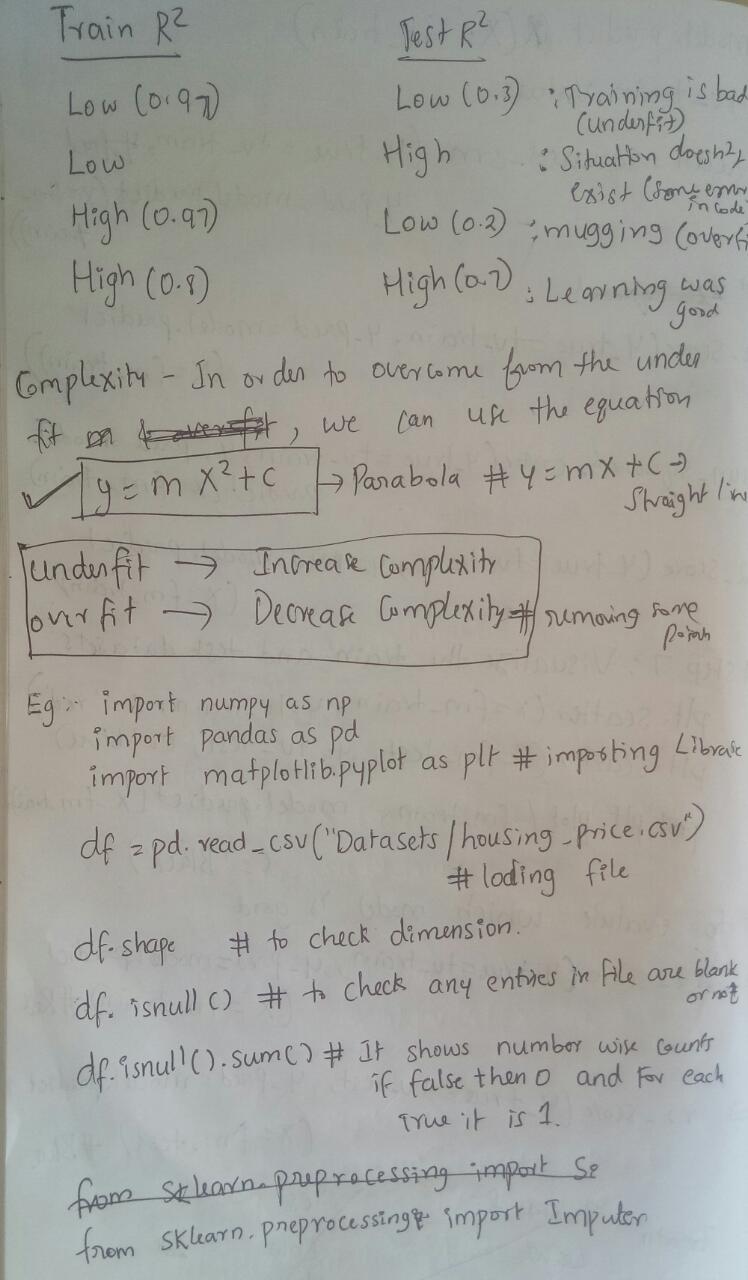 Train R² Test R²
Low (0.97) Low (0.3) : Training is bad
(underfit)
Low High : Situation doesn't
exist (some error
in code
High (0.97) Low (0.2) : mugging (overfi
High (0.8) High (0.7) : Learning was
good
Complexity - In order to overcome from the under
fit, we can use the equation
y = m x² + c → Parabola # y = mx + c →
Straight lin
underfit → Increase Complexity
overfit → Decrease Complexity # removing some
Eg:- import numpy as np
import pandas as pd
import matplotlib.pyplot as plt # importing Librar
df = pd.read_csv("Datasets/housing_price.csv")
# loding file
df.shape # to check dimension.
df.isnull() # to check any entries in file are blank
or not
df.isnull().sum() # It shows number wise counts
if false then 0 and For each
True it is 1.
from sklearn.preprocessing import Se
from sklearn.preprocessing import Imputer